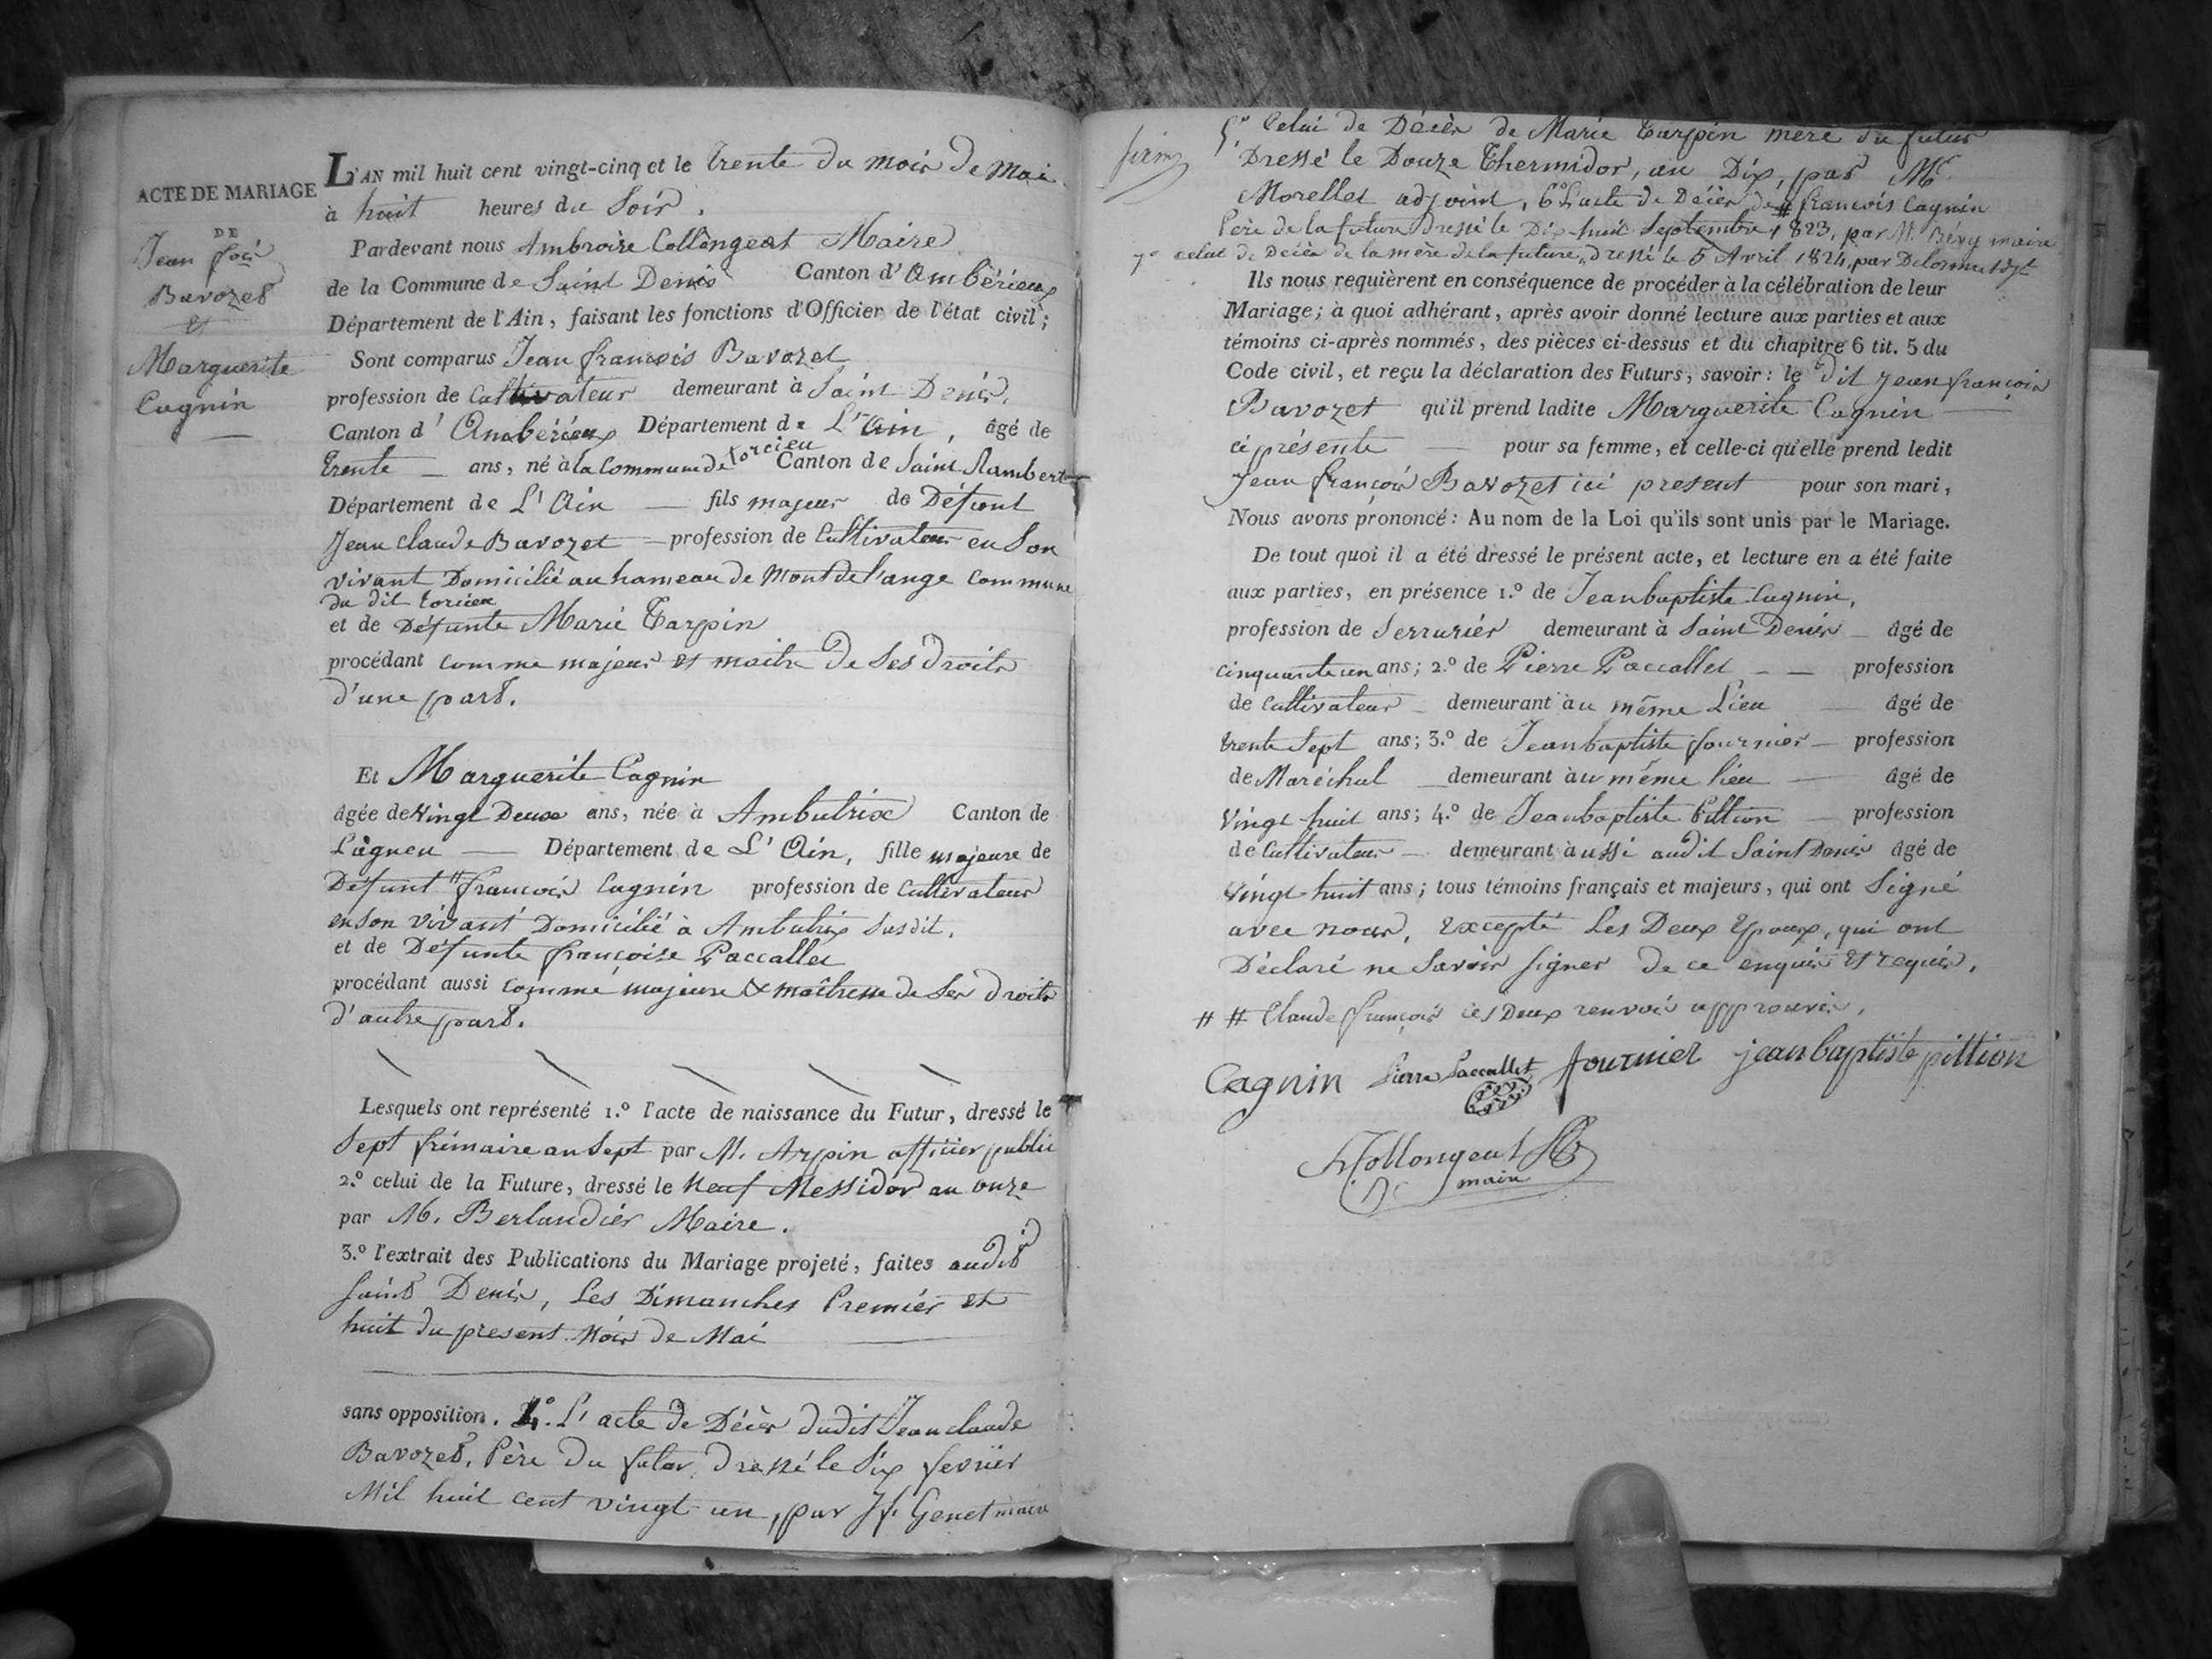 ACTE DE MARIAGE
DE
Jean fois
Bavozet
et
Marguerite
Cagnin
L'AN mil huit cent vingt-cinq et le trente du mois de Mai
à huit heures du Soir.
Pardevant nous Ambroise Collongeat Maire
de la Commune de Saint Denis Canton d'Ambérieux
Département de l'Ain, faisant les fonctions d'Officier de l'état civil;
Sont comparus Jean françois Bavozet
profession de Cultivateur demeurant à Saint Denis,
Canton d'Ambérieux Département de L'Ain, âgé de
trente ans, né à la Commune de torcieu Canton de Saint Rambert
Département de L'Ain fils majeur de Défunt
Jean Claude Bavozet profession de Cultivateur en Son
vivant Domicilié au hameau de Mont de l'ange Commune
du dit torcieu
et de Défunte Marie Tarpin
procédant comme majeur et maître de Ses droits
d'une part.
Et Marguerite Cagnin
âgée de vingt Deux ans, née à Ambutrix Canton de
Lagneu Département de L'Ain, fille majeure de
Défunt # françois Cagnin profession de Cultivateur
en son vivant Domicilié à Ambutrix Susdit,
et de Défunte françoise Paccallet
procédant aussi comme majeure & maîtresse de Ses droits
d'autre part.
Lesquels ont représenté 1.º l'acte de naissance du Futur, dressé le
Sept frimaire an Sept par M. Arpin officier public
2.º celui de la Future, dressé le Neuf Messidor an onze
par M. Berlandier Maire.
3.º l'extrait des Publications du Mariage projeté, faites audit
Saint Denis, Les Dimanches Premier et
huit du present Mois de Mai
sans opposition. 4.º L'acte de Décès dudit Jean claude
Bavozet, Père du futur, dressé le Six fevrier
Mil huit cent vingt-un, par Jf. Genet maire
5.º Celui de Décès de Marie Tarpin mere du futur
Dressé le Douze Thermidor, an Dix, par Mr
Morellet adjoint, 6º L'acte de Décès de # françois Cagnin
Père de la future dressé le Dix-huit Septembre 1823, par M. Bévy maire
7º celui de Décès de la mère de la future, dressé le 5 Avril 1824, par Delorme adjt
Ils nous requièrent en conséquence de procéder à la célébration de leur
Mariage; à quoi adhérant, après avoir donné lecture aux parties et aux
témoins ci-après nommés, des pièces ci-dessus et du chapitre 6 tit. 5 du
Code civil, et reçu la déclaration des Futurs, savoir: le dit Jean françois
Bavozet qu'il prend ladite Marguerite Cagnin
ci présente pour sa femme, et celle-ci qu'elle prend ledit
Jean françois Bavozet ici present pour son mari,
Nous avons prononcé: Au nom de la Loi qu'ils sont unis par le Mariage.
De tout quoi il a été dressé le présent acte, et lecture en a été faite
aux parties, en présence 1.º de Jean baptiste Cagnin,
profession de Serrurier demeurant à Saint Denis âgé de
cinquante un ans; 2.º de Pierre Paccallet profession
de Cultivateur demeurant au même Lieu âgé de
trente Sept ans; 3.º de Jean baptiste fournier profession
de Maréchal demeurant au même lieu âgé de
vingt huit ans; 4.º de Jean baptiste Pittion profession
de Cultivateur demeurant aussi audit Saint Denis âgé de
vingt-huit ans; tous témoins français et majeurs, qui ont Signé
avec nous, Excepté Les Deux Epoux, qui ont
Déclaré ne Savoir signer de ce enquis Et requis.
# # Claude françois les Deux renvois approuvés.
Cagnin Pierre Paccallet fournier jean baptiste pittion
A Collongeat
maire